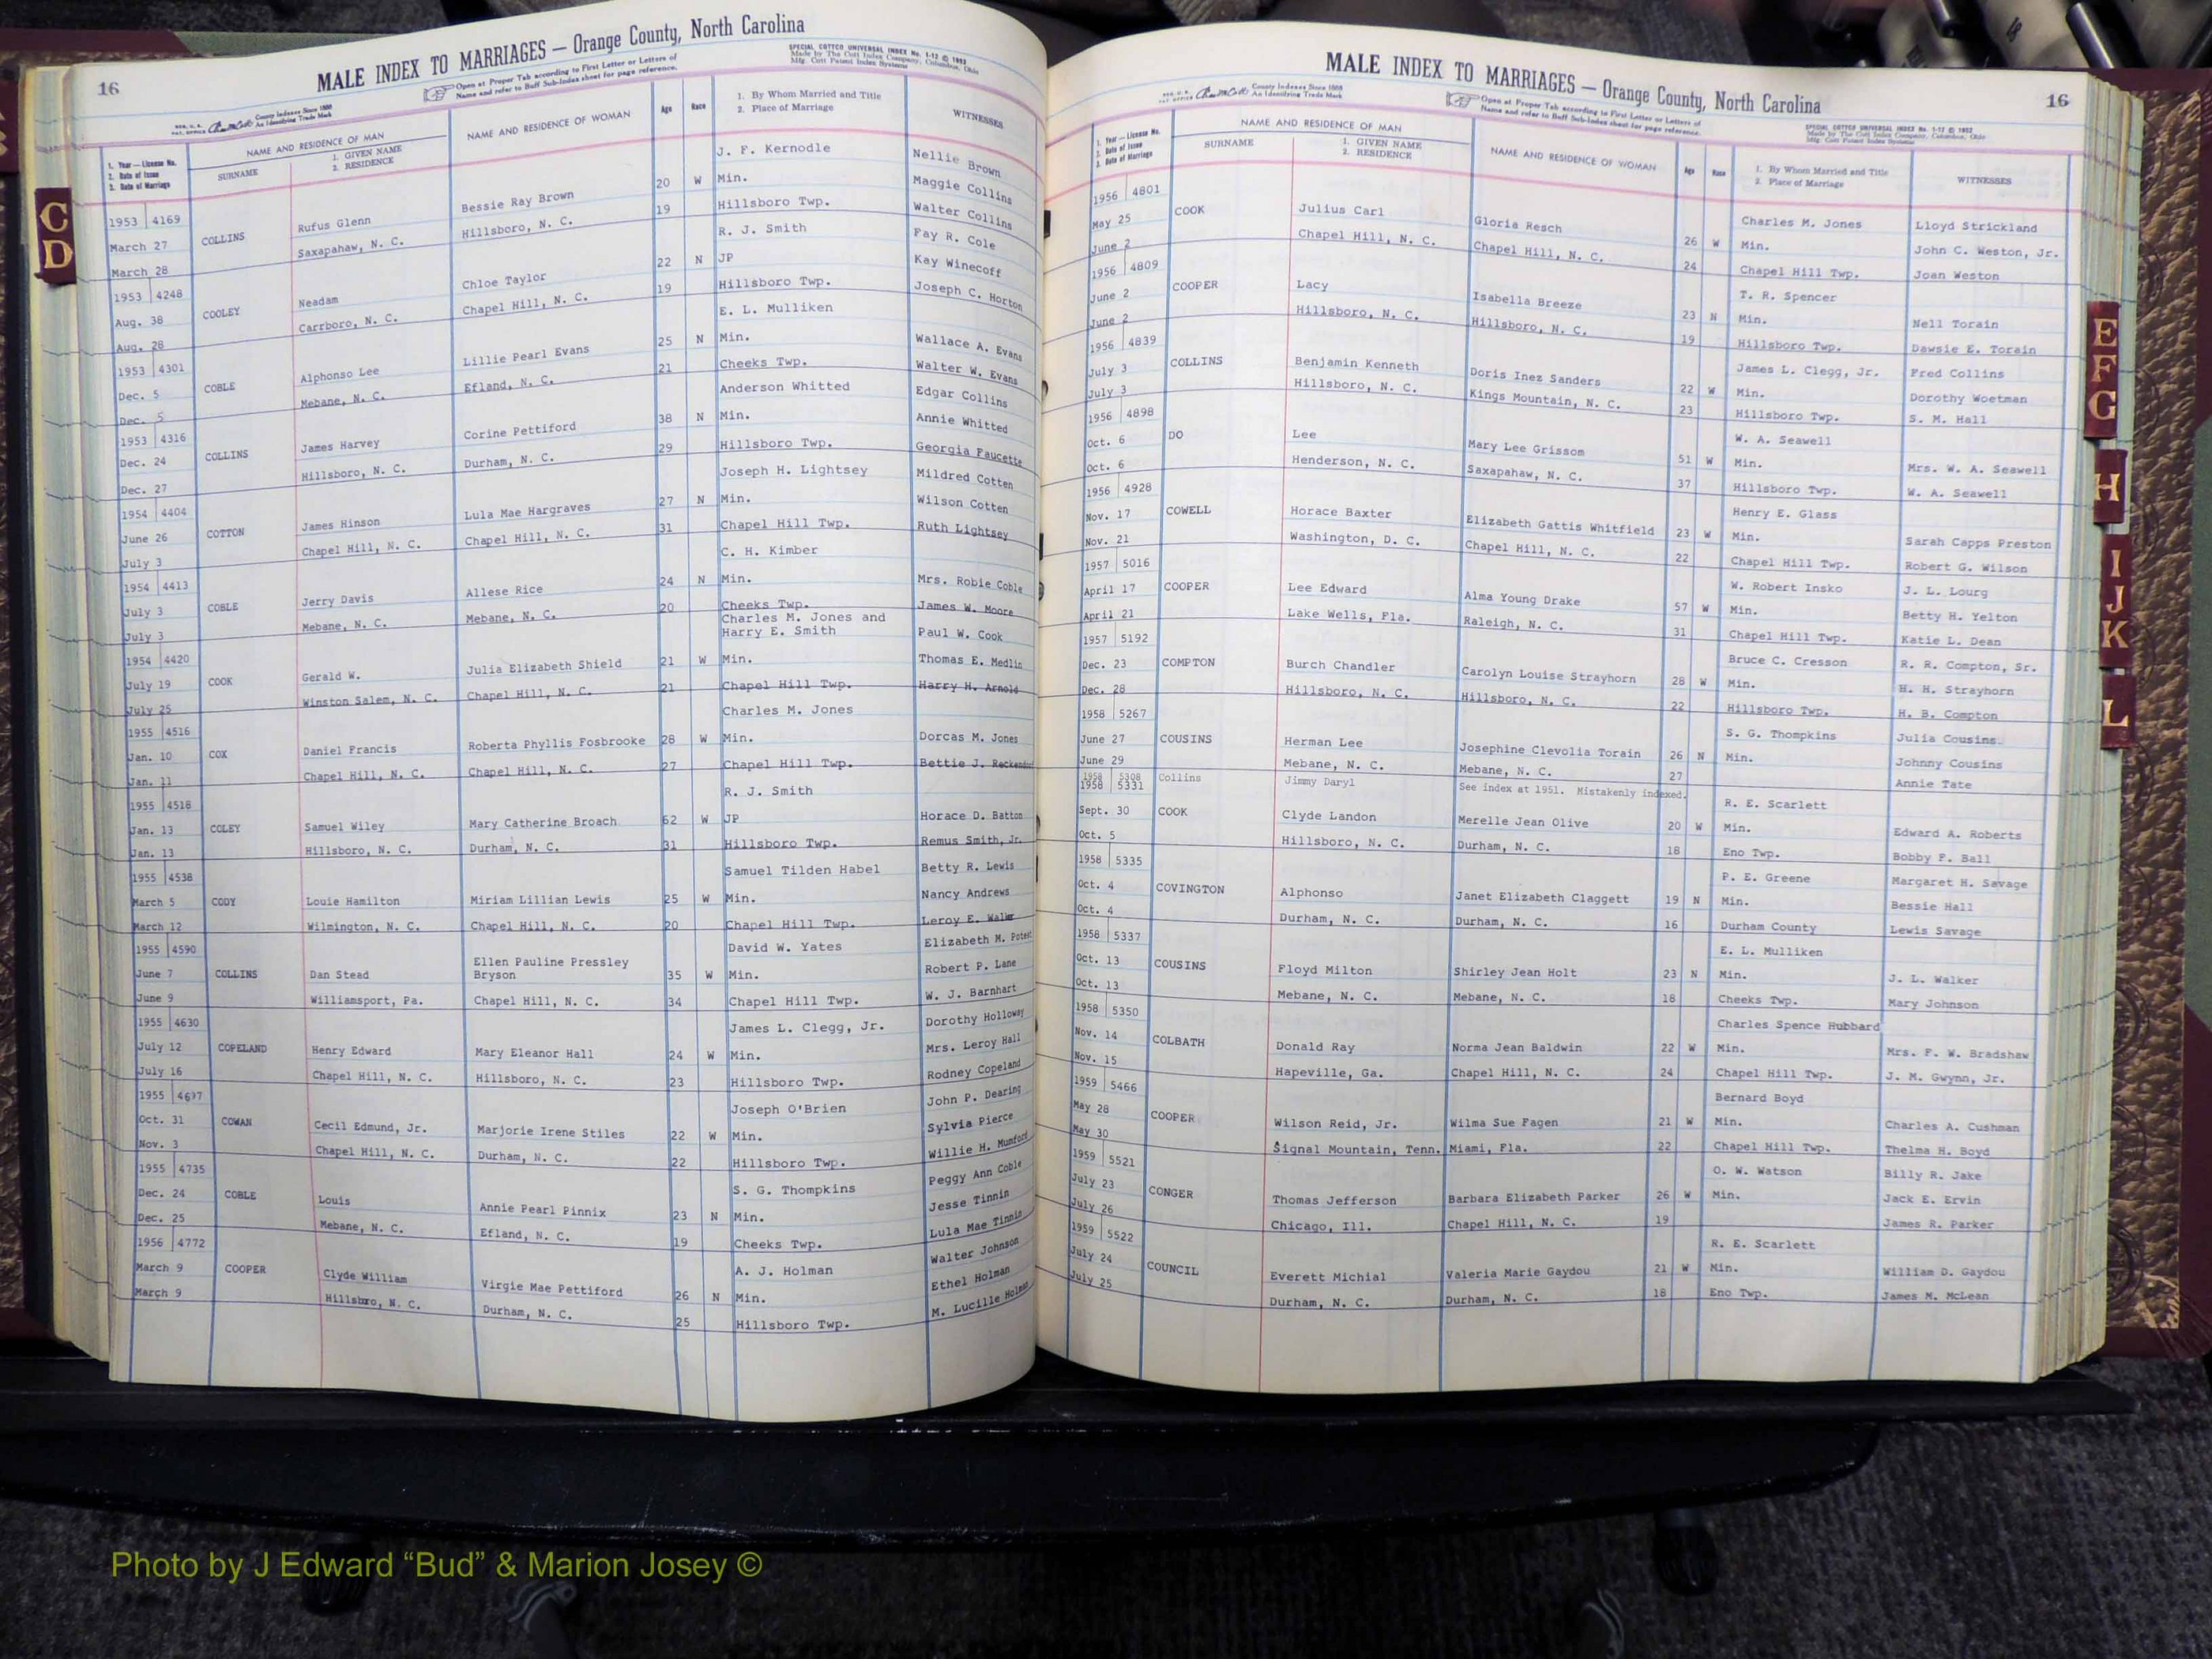 16
MALE INDEX TO MARRIAGES — Orange County, North Carolina
Open at Proper Tab according to First Letter or Letters of
Name and refer to Buff Sub-Index sheet for page reference.
SPECIAL COTTCO UNIVERSAL INDEX No. 1-12 © 1952
Made by The Cott Index Company, Columbus, Ohio
Mfg. Cott Patent Index Systems
County Indexes Since 1888
An Identifying Trade Mark
1. Year — License No.
2. Date of Issue
3. Date of Marriage
NAME AND RESIDENCE OF MAN
SURNAME
1. GIVEN NAME
2. RESIDENCE
NAME AND RESIDENCE OF WOMAN
Age
Race
1. By Whom Married and Title
2. Place of Marriage
WITNESSES
C
D
1953 4169 J. F. Kernodle Nellie Brown
March 27 COLLINS Rufus Glenn Bessie Ray Brown 20 W Min. Maggie Collins
March 28 Saxapahaw, N. C. Hillsboro, N. C. 19 Hillsboro Twp. Walter Collins
1953 4248 R. J. Smith Fay R. Cole
Aug. 38 COOLEY Neadam Chloe Taylor 22 N JP Kay Winecoff
Aug. 28 Carrboro, N. C. Chapel Hill, N. C. 19 Hillsboro Twp. Joseph C. Horton
1953 4301 E. L. Mulliken
Dec. 5 COBLE Alphonso Lee Lillie Pearl Evans 25 N Min. Wallace A. Evans
Dec. 5 Mebane, N. C. Efland, N. C. 21 Cheeks Twp. Walter W. Evans
1953 4316 Anderson Whitted Edgar Collins
Dec. 24 COLLINS James Harvey Corine Pettiford 38 N Min. Annie Whitted
Dec. 27 Hillsboro, N. C. Durham, N. C. 29 Hillsboro Twp. Georgia Faucette
1954 4404 Joseph H. Lightsey Mildred Cotten
June 26 COTTON James Hinson Lula Mae Hargraves 27 N Min. Wilson Cotten
July 3 Chapel Hill, N. C. Chapel Hill, N. C. 31 Chapel Hill Twp. Ruth Lightsey
1954 4413 C. H. Kimber
July 3 COBLE Jerry Davis Allese Rice 24 N Min. Mrs. Robie Coble
July 3 Mebane, N. C. Mebane, N. C. 20 Cheeks Twp. James W. Moore
1954 4420 Charles M. Jones and
Harry E. Smith Paul W. Cook
July 19 COOK Gerald W. Julia Elizabeth Shield 21 W Min. Thomas E. Medlin
July 25 Winston Salem, N. C. Chapel Hill, N. C. 21 Chapel Hill Twp. Harry H. Arnold
1955 4516 Charles M. Jones
Jan. 10 COX Daniel Francis Roberta Phyllis Fosbrooke 28 W Min. Dorcas M. Jones
Jan. 11 Chapel Hill, N. C. Chapel Hill, N. C. 27 Chapel Hill Twp. Bettie J.
1955 4518 R. J. Smith
Jan. 13 COLEY Samuel Wiley Mary Catherine Broach 62 W JP Horace D. Batton
Jan. 13 Hillsboro, N. C. Durham, N. C. 31 Hillsboro Twp. Remus Smith, Jr.
1955 4538 Samuel Tilden Habel Betty R. Lewis
March 5 CODY Louie Hamilton Miriam Lillian Lewis 25 W Min. Nancy Andrews
March 12 Wilmington, N. C. Chapel Hill, N. C. 20 Chapel Hill Twp. Leroy E.
1955 4590 David W. Yates Elizabeth M.
Ellen Pauline Pressley
June 7 COLLINS Dan Stead Bryson 35 W Min. Robert P. Lane
June 9 Williamsport, Pa. Chapel Hill, N. C. 34 Chapel Hill Twp. W. J. Barnhart
1955 4630 James L. Clegg, Jr. Dorothy Holloway
July 12 COPELAND Henry Edward Mary Eleanor Hall 24 W Min. Mrs. Leroy Hall
July 16 Chapel Hill, N. C. Hillsboro, N. C. 23 Hillsboro Twp. Rodney Copeland
1955 Joseph O'Brien John P. Dearing
Oct. 31 COWAN Cecil Edmund, Jr. Marjorie Irene Stiles 22 W Min. Sylvia Pierce
Nov. 3 Chapel Hill, N. C. Durham, N. C. 22 Hillsboro Twp. Willie H. Mumford
1955 4735 S. G. Thompkins Peggy Ann Coble
Dec. 24 COBLE Louis Annie Pearl Pinnix 23 N Min. Jesse Tinnin
Dec. 25 Mebane, N. C. Efland, N. C. 19 Cheeks Twp. Lula Mae Tinnin
1956 4772 A. J. Holman Walter Johnson
March 9 COOPER Clyde William Virgie Mae Pettiford 26 N Min. Ethel Holman
March 9 Hillsbro, N. C. Durham, N. C. 25 Hillsboro Twp. M. Lucille Holman
MALE INDEX TO MARRIAGES — Orange County, North Carolina
16
County Indexes Since 1888
An Identifying Trade Mark
Open at Proper Tab according to First Letter or Letters of
Name and refer to Buff Sub-Index sheet for page reference.
SPECIAL COTTCO UNIVERSAL INDEX No. 1-12 © 1952
Made by The Cott Index Company, Columbus, Ohio
Mfg. Cott Patent Index Systems
1. Year — License No.
2. Date of Issue
3. Date of Marriage
NAME AND RESIDENCE OF MAN
SURNAME
1. GIVEN NAME
2. RESIDENCE
NAME AND RESIDENCE OF WOMAN
Age
Race
1. By Whom Married and Title
2. Place of Marriage
WITNESSES
1956 4801 Charles M. Jones Lloyd Strickland
May 25 COOK Julius Carl Gloria Resch 26 W Min. John C. Weston, Jr.
June 2 Chapel Hill, N. C. Chapel Hill, N. C. 24 Chapel Hill Twp. Joan Weston
1956 4809 T. R. Spencer
June 2 COOPER Lacy Isabella Breeze 23 N Min. Nell Torain
June 2 Hillsboro, N. C. Hillsboro, N. C. 19 Hillsboro Twp. Dawsie E. Torain
1956 4839 James L. Clegg, Jr. Fred Collins
July 3 COLLINS Benjamin Kenneth Doris Inez Sanders 22 W Min. Dorothy Woetman
July 3 Hillsboro, N. C. Kings Mountain, N. C. 23 Hillsboro Twp. S. M. Hall
1956 4898 W. A. Seawell
Oct. 6 DO Lee Mary Lee Grissom 51 W Min. Mrs. W. A. Seawell
Oct. 6 Henderson, N. C. Saxapahaw, N. C. 37 Hillsboro Twp. W. A. Seawell
1956 4928 Henry E. Glass
Nov. 17 COWELL Horace Baxter Elizabeth Gattis Whitfield 23 W Min. Sarah Capps Preston
Nov. 21 Washington, D. C. Chapel Hill, N. C. 22 Chapel Hill Twp. Robert G. Wilson
1957 5016 W. Robert Insko J. L. Lourg
April 17 COOPER Lee Edward Alma Young Drake 57 W Min. Betty H. Yelton
April 21 Lake Wells, Fla. Raleigh, N. C. 31 Chapel Hill Twp. Katie L. Dean
1957 5192 Bruce C. Cresson R. R. Compton, Sr.
Dec. 23 COMPTON Burch Chandler Carolyn Louise Strayhorn 28 W Min. H. H. Strayhorn
Dec. 28 Hillsboro, N. C. Hillsboro, N. C. 22 Hillsboro Twp. H. B. Compton
1958 5267 S. G. Thompkins Julia Cousins
June 27 COUSINS Herman Lee Josephine Clevolia Torain 26 N Min. Johnny Cousins
June 29 Mebane, N. C. Mebane, N. C. 27 Annie Tate
1958 5308 Collins Jimmy Daryl See index at 1951. Mistakenly indexed.
1958 5331 R. E. Scarlett
Sept. 30 COOK Clyde Landon Merelle Jean Olive 20 W Min. Edward A. Roberts
Oct. 5 Hillsboro, N. C. Durham, N. C. 18 Eno Twp. Bobby F. Ball
1958 5335 P. E. Greene Margaret H. Savage
Oct. 4 COVINGTON Alphonso Janet Elizabeth Claggett 19 N Min. Bessie Hall
Oct. 4 Durham, N. C. Durham, N. C. 16 Durham County Lewis Savage
1958 5337 E. L. Mulliken
Oct. 13 COUSINS Floyd Milton Shirley Jean Holt 23 N Min. J. L. Walker
Oct. 13 Mebane, N. C. Mebane, N. C. 18 Cheeks Twp. Mary Johnson
1958 5350 Charles Spence Hubbard
Nov. 14 COLBATH Donald Ray Norma Jean Baldwin 22 W Min. Mrs. F. W. Bradshaw
Nov. 15 Hapeville, Ga. Chapel Hill, N. C. 24 Chapel Hill Twp. J. M. Gwynn, Jr.
1959 5466 Bernard Boyd
May 28 COOPER Wilson Reid, Jr. Wilma Sue Fagen 21 W Min. Charles A. Cushman
May 30 Signal Mountain, Tenn. Miami, Fla. 22 Chapel Hill Twp. Thelma H. Boyd
1959 5521 O. W. Watson Billy R. Jake
July 23 CONGER Thomas Jefferson Barbara Elizabeth Parker 26 W Min. Jack E. Ervin
July 26 Chicago, Ill. Chapel Hill, N. C. 19 James R. Parker
1959 5522 R. E. Scarlett
July 24 COUNCIL Everett Michial Valeria Marie Gaydou 21 W Min. William D. Gaydou
July 25 Durham, N. C. Durham, N. C. 18 Eno Twp. James M. McLean
E
F
G
H
I
J
K
L
Photo by J Edward “Bud” & Marion Josey ©